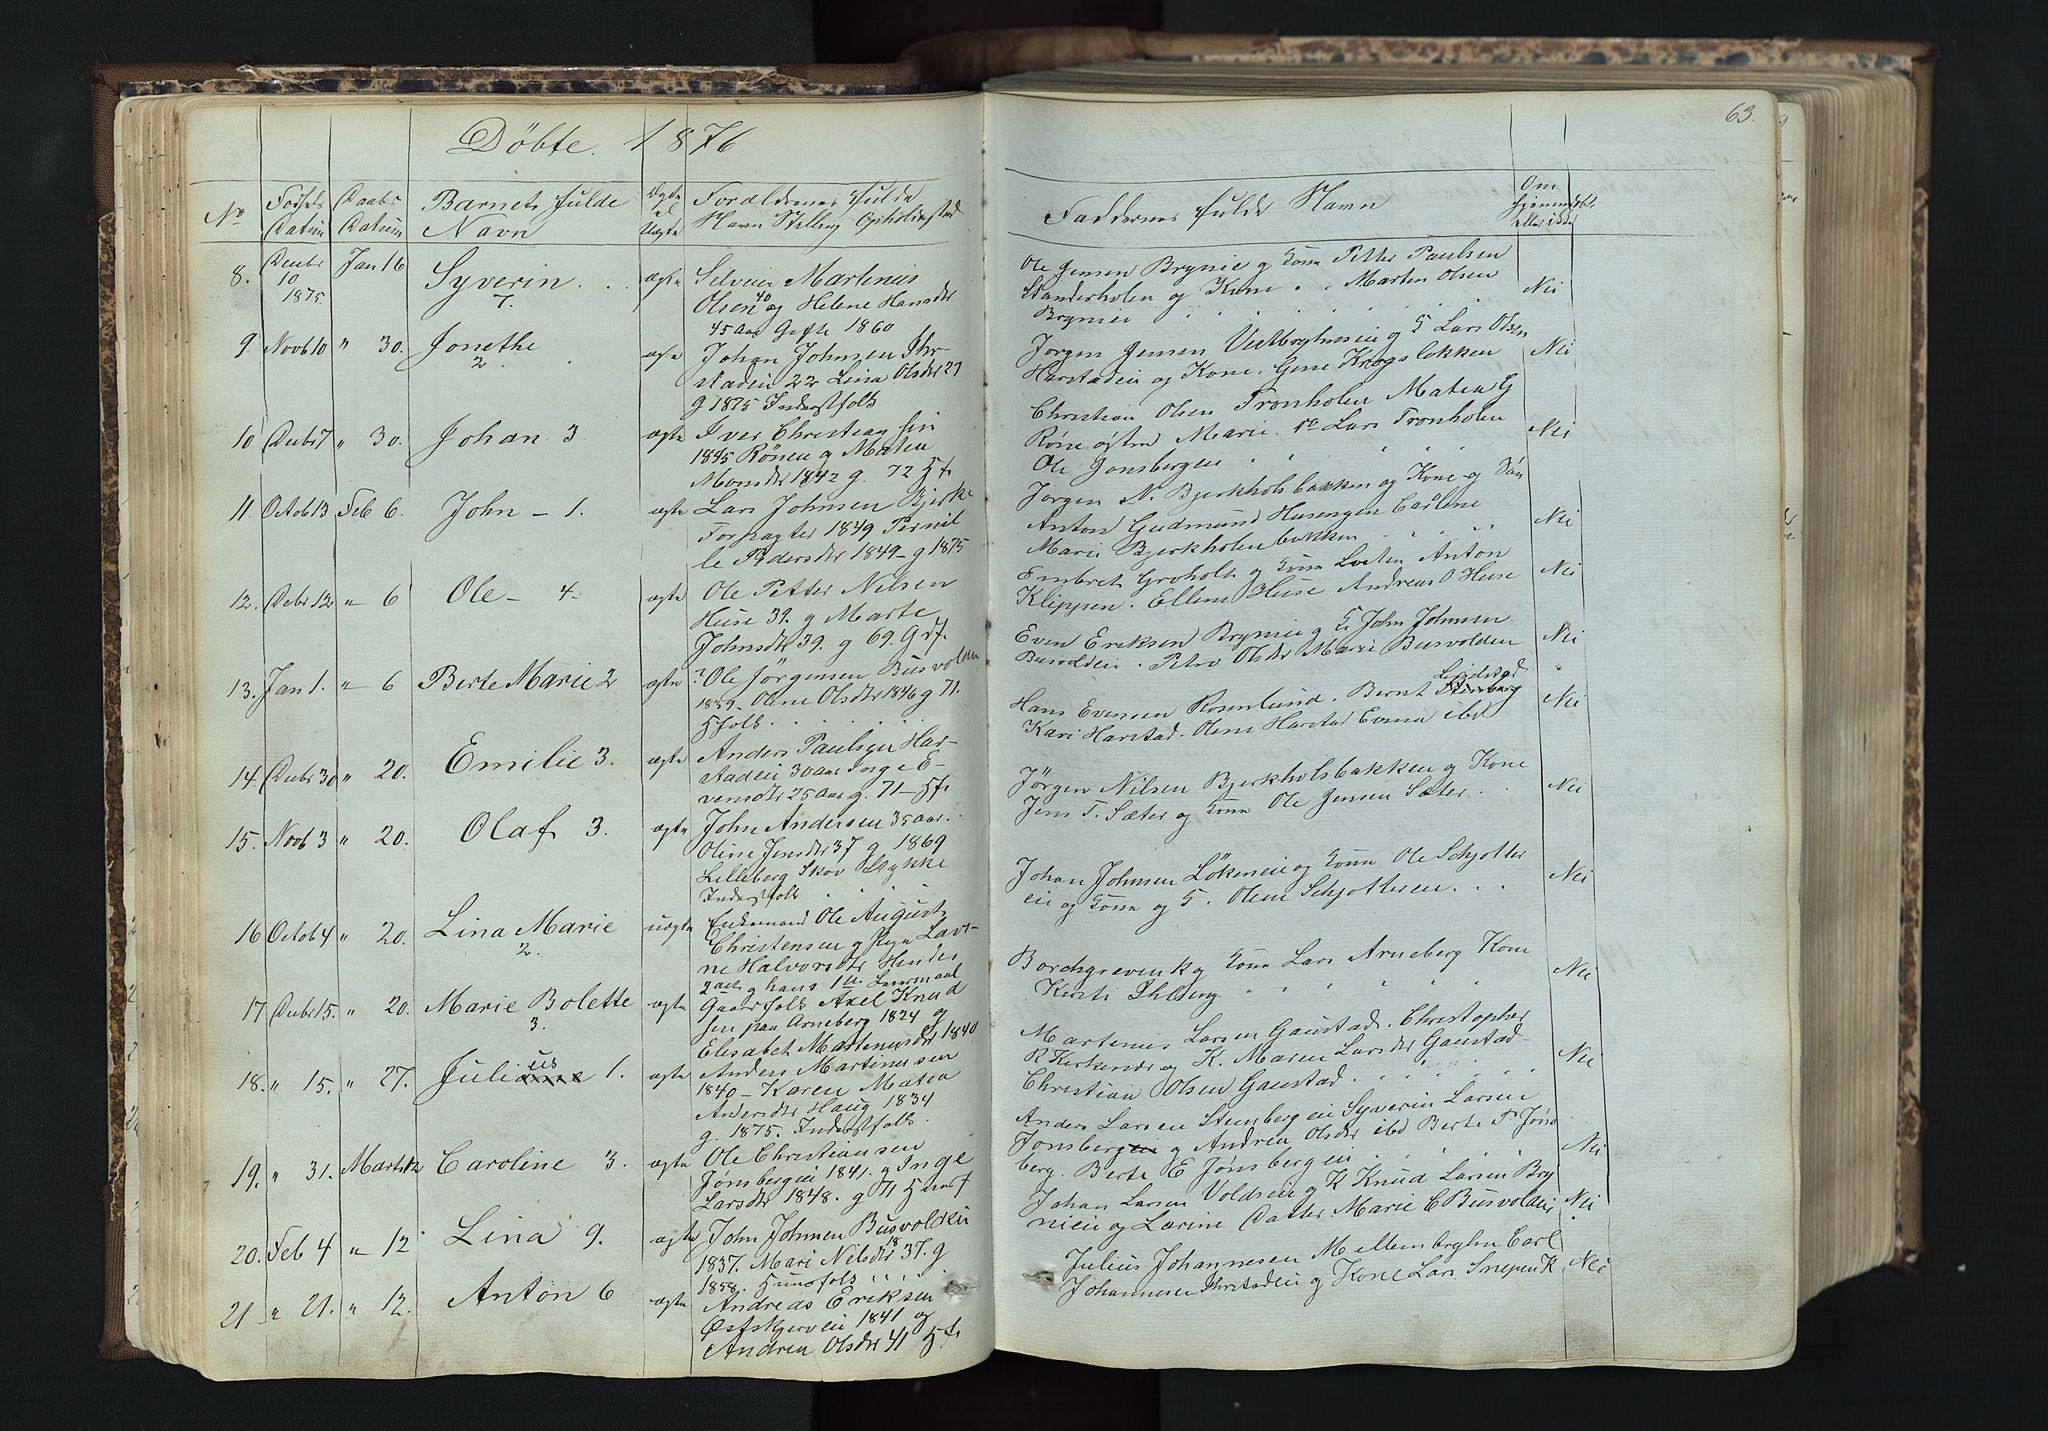 63.
Döbte. 1876
No
Fødsels Datum
Daabs Datum
Barnets fulde Navn
Ægte el Uægte
Forældrenes fulde Navn Stilling Opholdssted
Faddernes fulde Navn
Om hjemmedøbt eller ikke
8. Decbr 10 1875 Jan 16 Syverin 7. ægte
Martinus
Olsen 40 og Helene Hansdtr
45 Aar Gifte 1860
Ole Jensen Brynie og Kone Petter Paulsen
og Kone Marten Olsen
Brynie
Nei
9. Novb 10 " 30. Jonethe 2 ægte
Johan Johnsen
22 Lina Olsdtr 27
g 1875 Inderstfolk
Jorgen Jensen og G Lars Olsen
Harstadeie og Kone. Krogsløkken
Nei
10 Decbr 7 " 30. Johan 3 ægte
Iver Christian
1845 Rönen og Maten
Monsdtr 1842 g. 72 Hf
Christian Olsen Tronholen Maten G
Röne Marie. Lars Tronholen
Ole Jonsbergeie
Nei
11. Octob 13 Feb 6. John - 1. ægte
Lars Johnsen Bjerke
Forpagter 1849 Pernil
le Pedersdtr 1849 - g 1875
Jörgen N. Bjerkholsbakken og Kone og Sön
Anton Gudmund Husengen
Marie Bjerkholenbakken
Nei
12. Decbr 12 " 6 Ole - 4. ægte
Ole Petter Nilsen
Huse 39. g Marte
Johnsdtr 39. g 69. Gdf.
Embret Groholt og Kone Anton
Klippen. Ellene Huse Andreas O Huse
Nei
13. Jan 1. " 6 Berte Marie 2 ægte
Ole Jörgensen Busvolden
1839 Olene Olsdtr 1846 g 71.
Hfolk
Even Eriksen Brynie og G John Johnsen
Busvoldeie. Petra Olsdtr Marie Busvolden
Nei
14. Decbr 30 " 20. Emilie 3. ægte
Anders Paulsen Har-
stadeie 30 Aar Inge E-
vensdtr 25 Aar g. 71 - Hf
Hans Evensen Rosenlund. Bernt
Kari Harstad. Olene Harstad Emma ibd
Nei
15. Novb 3 " 20. Olaf 3. ægte
John Andersen 35 aar.
Oline Jensdtr 37 g 1869
Lilleberg Skov Stykke
Inderstfolk
Jörgen Nilsen Bjerkholsbakken og Kone
Jens T. Sæter og Kone Ole Jensen Sæter
Nei
16 Octob 4 " 20. Lina Marie 2. uægte
Enkemand Ole August
Christensen og Pige Lavi-
ne Halvorsdtr Hendes
2det g hans 1te Leiermaal
Johan Johnsen Lökeneie og Kone Ole Schjotter
eie og Kone og G. Olene Schjottereie
Nei
17 Decbr 15. " 20. Marie Bolette 3. ægte
Gaardfolk Axel Knud
sen paa Arneberg 1824 og
Elisabet Martinusdtr 1840
Borchgrevenk og Kone Lars Arneberg Kone
Kersti
Nei
18. " 15. " 27. Julius 1. ægte
Anders Martinusen
1840 - Karen Maten
Andersdtr Haug 1834
g. 1875. Inderstfolk.
Martenus Larsen Gaustad. Christopher
R Kirkende og K. Maren Larsdtr Gaustad
Christian Olsen Gaustad.
Nei
19. " 31. Marts 12 Caroline 3. ægte
Ole Christiansen
Jönsbergeie 1841. g Inge
Larsdtr 1848. g 71
Anders Larsen Stenbergeie Syverin Larsen
Jonsberg og Andrea Olsdtr ibd Berte P Jöns
berg. Berte E Jönsbergeie
Nei
20. Feb 4 " 12 Lina 9. ægte
John Johnsen Busvoldeie
1837. Mari Nilsdtr 37. g
1858.
Johan Larsen Voldseie og K Knud Larsen Bry
nieie og Larine Datter Marie C Busvoldeie
Nei
21 " 21. " 12. Anton 6 ægte
Andreas Eriksen
Østskjerveie 1841 og
Andrea Olsdtr 41 Hf
Julius Johannesen Mellembyhn Carl
Johannesen og Kone Lars Snepen K
Nei